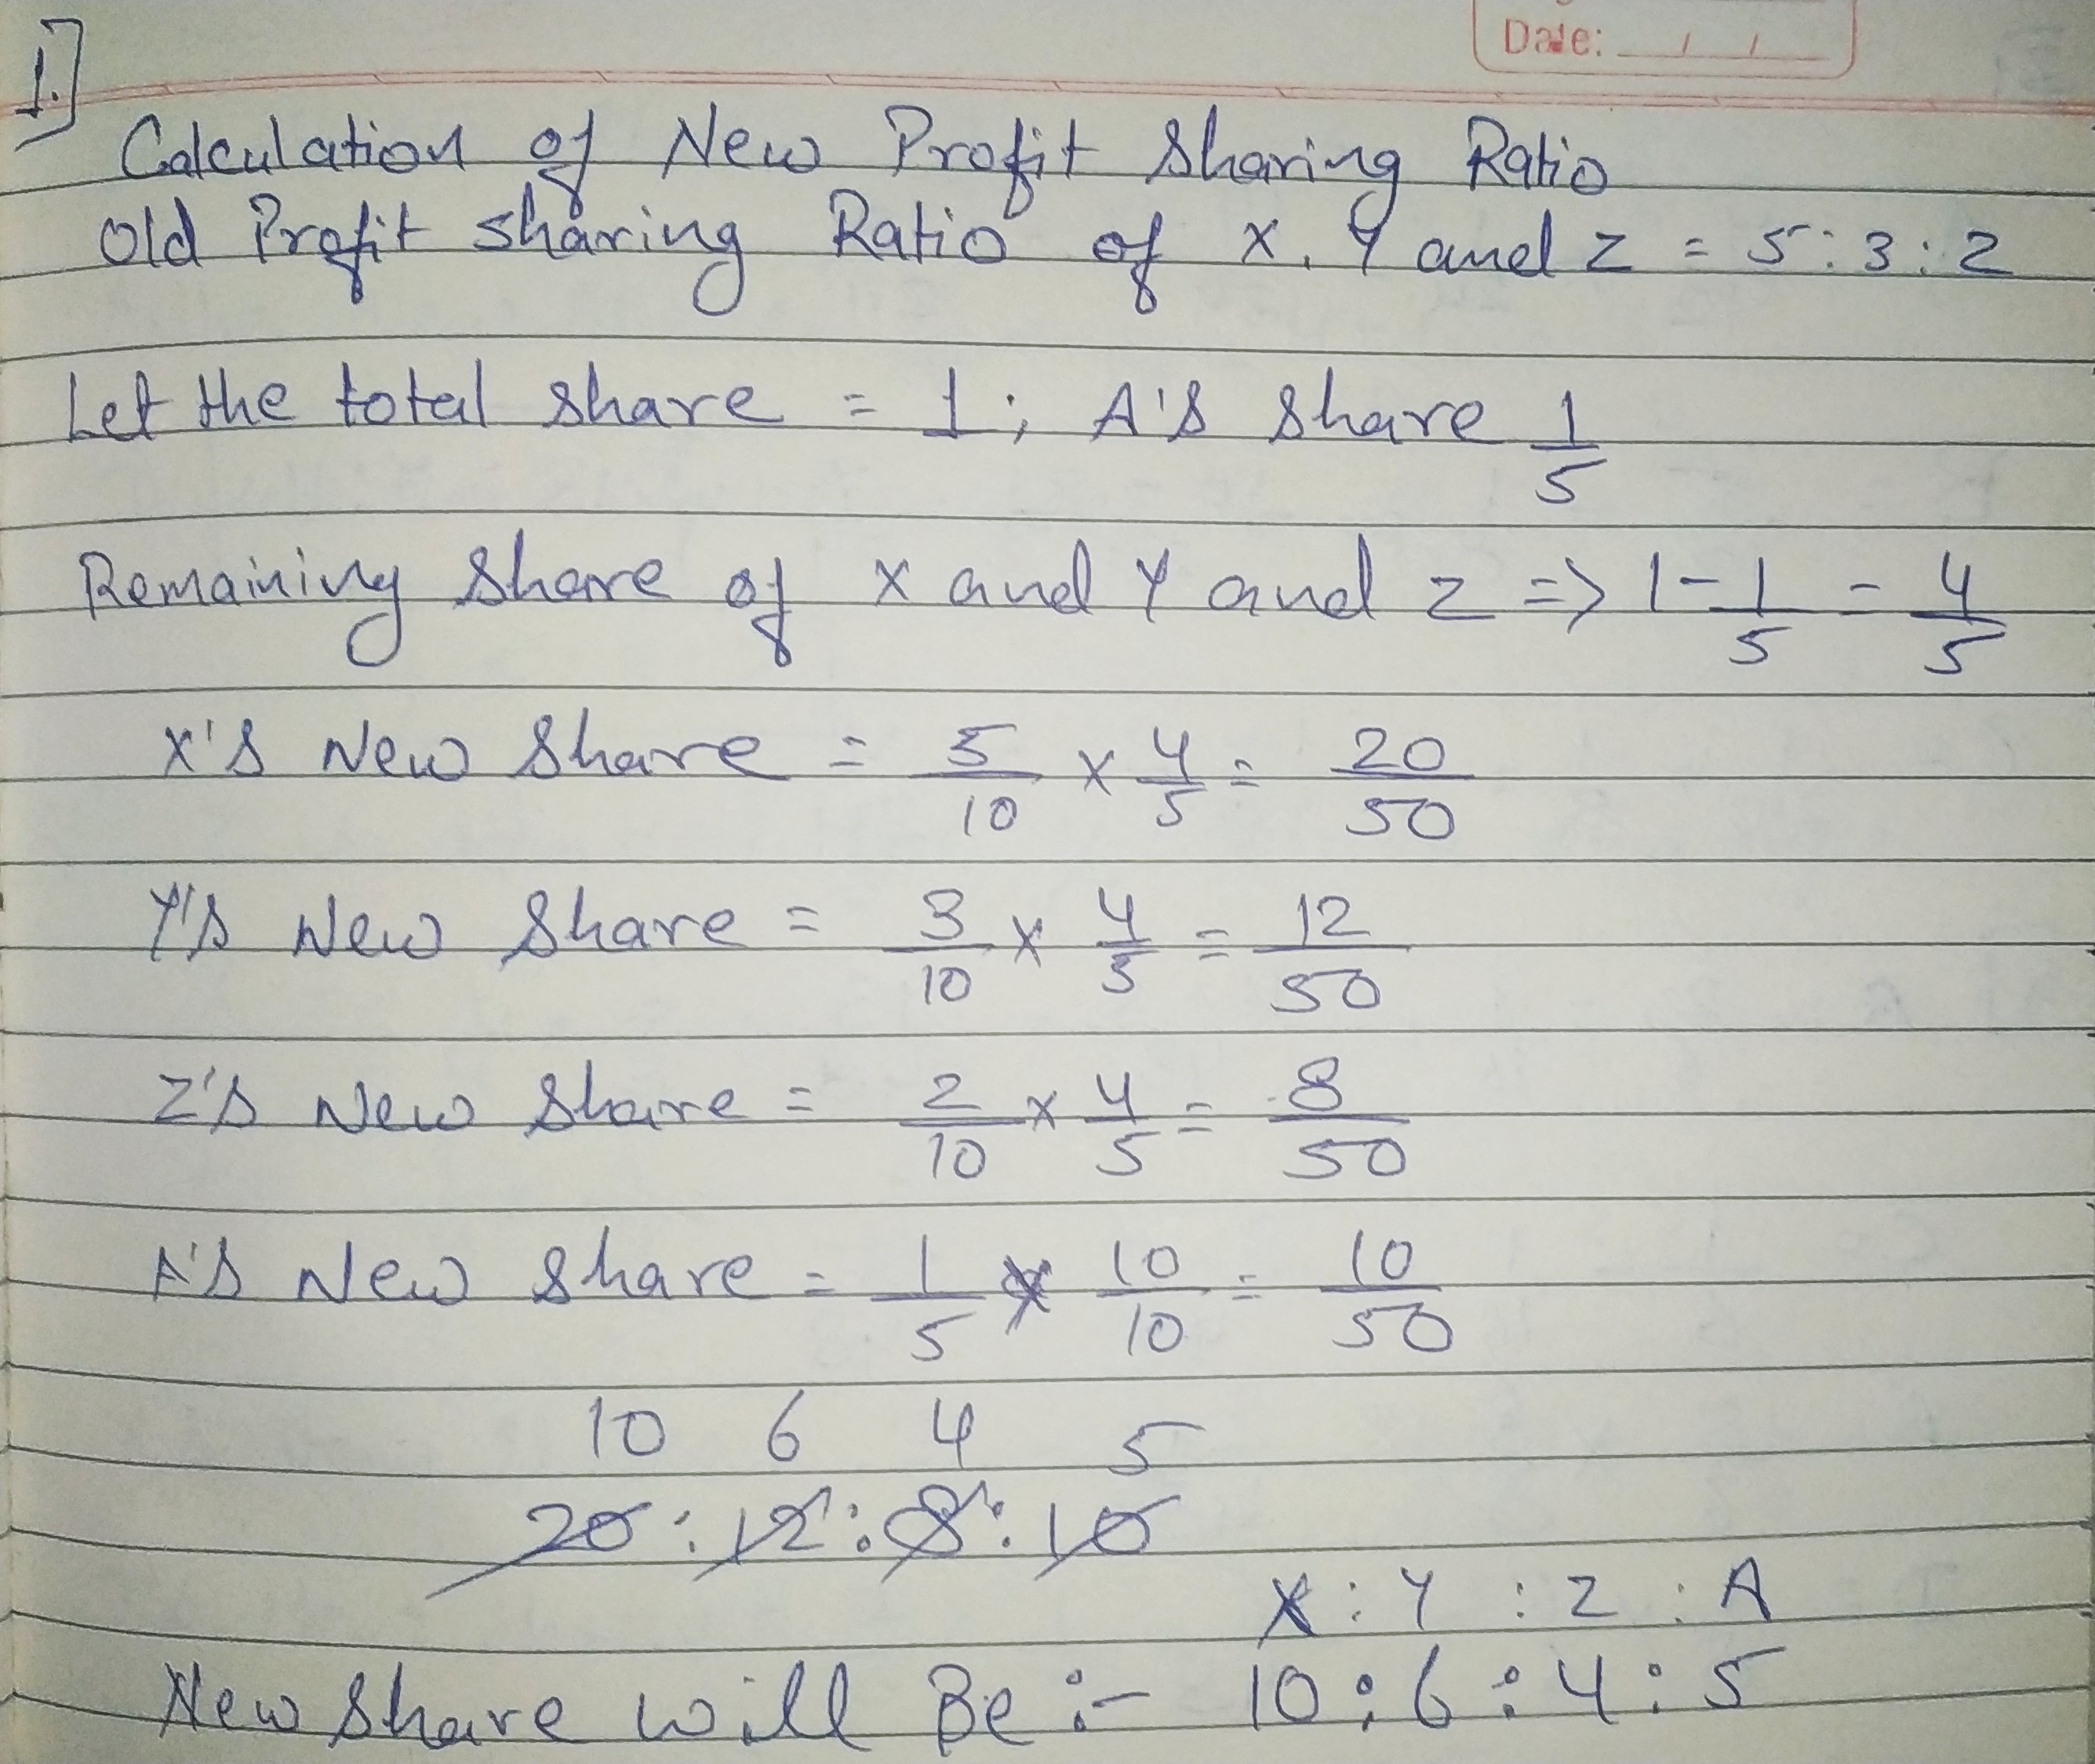 Date: / /
1.]
Calculation of New Profit Sharing Ratio
Old Profit sharing Ratio of X, Y and Z = 5:3:2
Let the total share = 1; A's share 1/5
Remaining Share of X and Y and Z => 1 - 1/5 = 4/5
X's New Share = 5/10 x 4/5 = 20/50
Y's New Share = 3/10 x 4/5 = 12/50
Z's New Share = 2/10 x 4/5 = 8/50
A's New Share = 1/5 x 10/10 = 10/50
10 6 4 5
20 : 12 : 8 : 10
X : Y : Z : A
New Share will Be :- 10 : 6 : 4 : 5